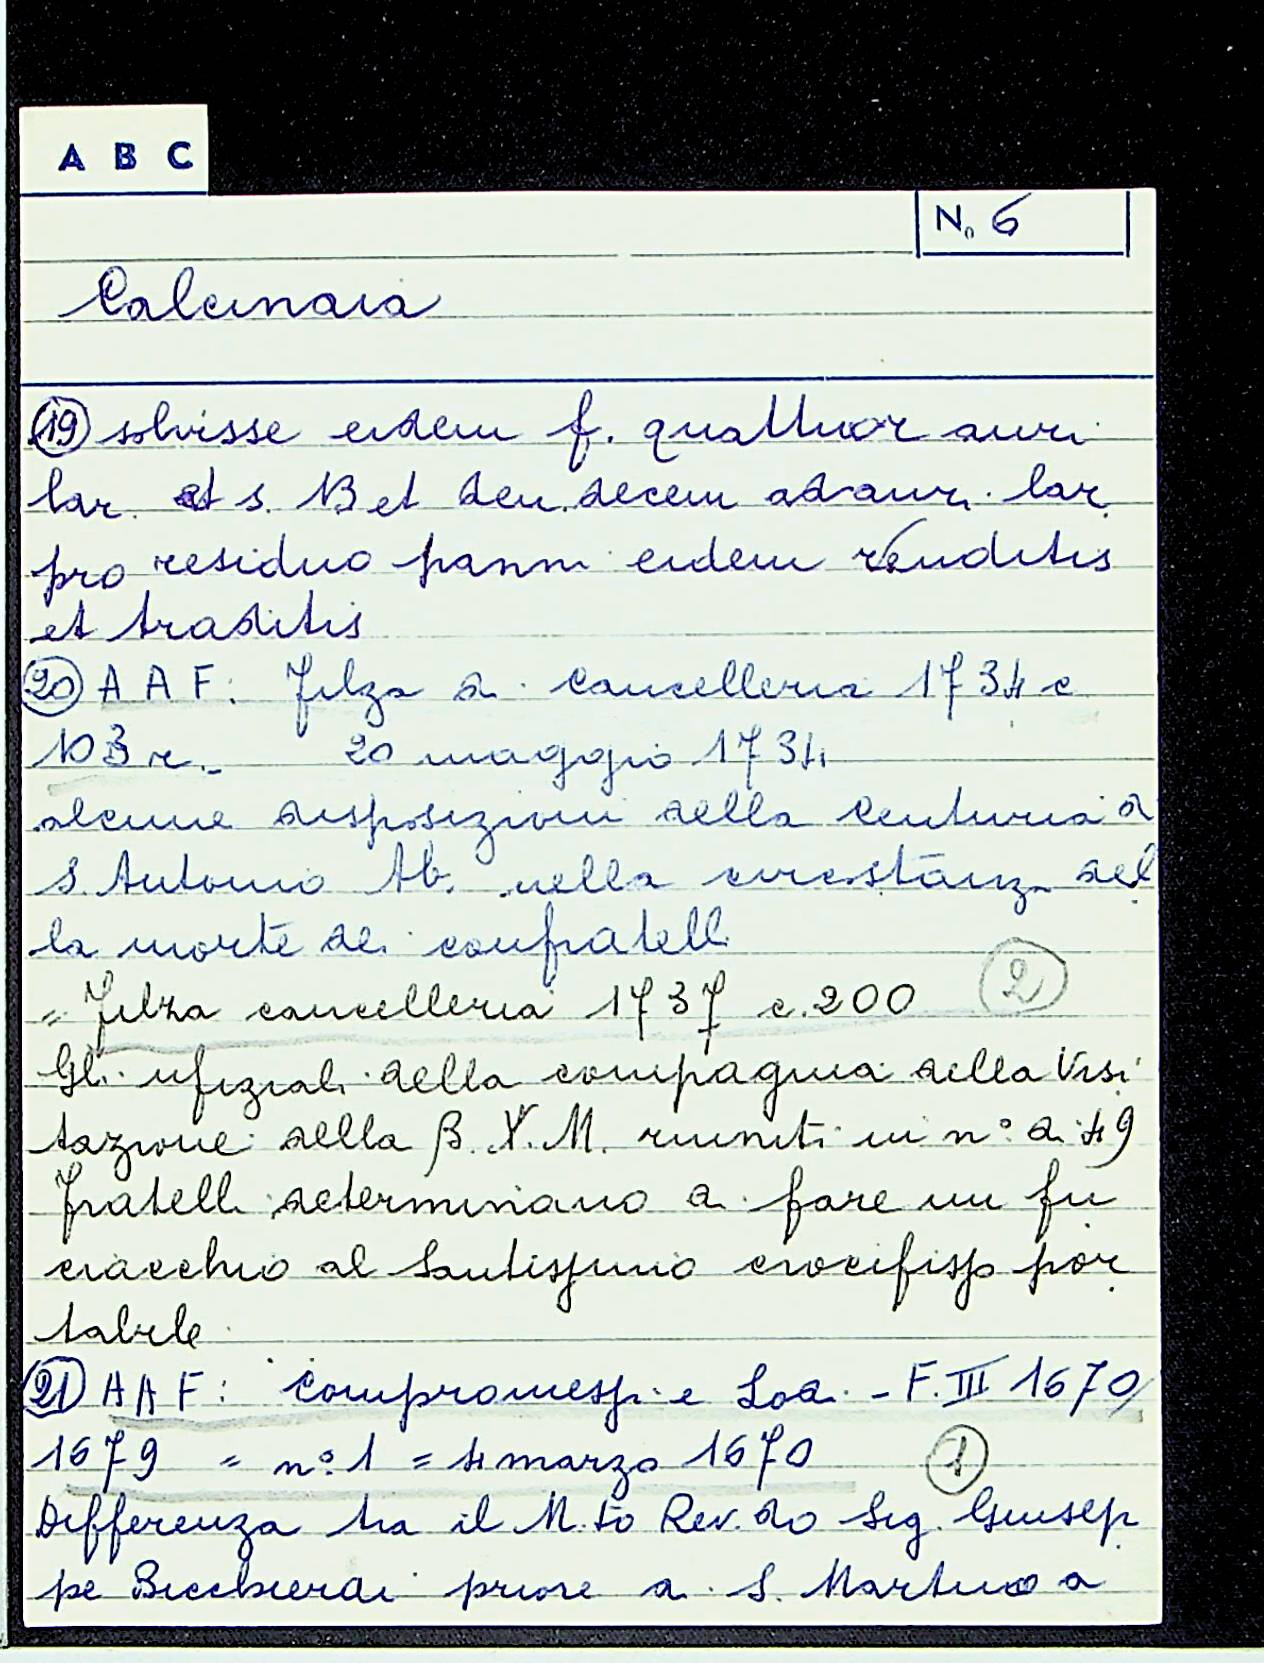 A B C
N. 6
Calcinaia
19 solvisse eidem f. quattuor auri
lar. et s. 13 et den. decem ad aur. lar.
pro residuo panni eidem venditis
et traditis
20 A A F: Filza di cancelleria 1734 c
103 r. 20 maggio 1734
alcune disposizioni della Centuria di
S. Antonio Ab. nella circostanza del
la morte dei confratelli
= Filza cancelleria 1737 c. 200 2
Gli ufiziali della compagnia della Visi
tazione della B. V. M. riuniti in n° di 49
fratelli determinano di fare un fu
ciacchio al Santissimo crocifisso por
tabile
21 A A F: Compromessi e Lodi - F. III 1670/
1679 = n° 1 = 4 marzo 1670 1
Differenza tra il M.to Rev.do Sig. Giusep
pe Bicchierai priore di S. Martino a